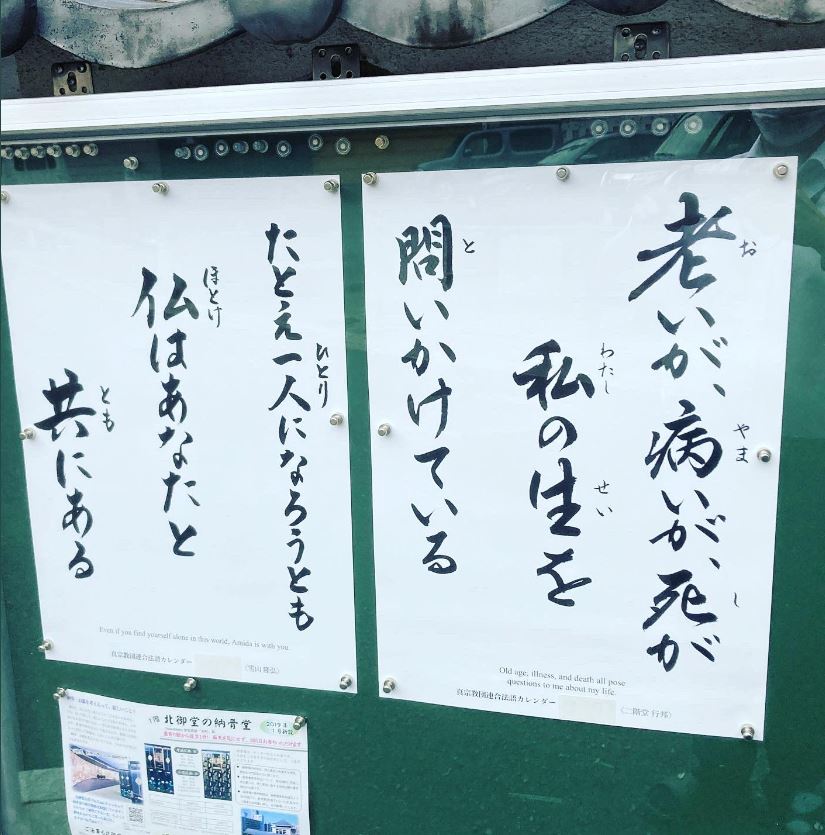 老いが、病いが、死が
お
やま
し
私の生を
わたし
せい
問いかけている
と
Old age, illness, and death all pose
questions to me about my life.
真宗教団連合法語カレンダー
〈二階堂 行邦〉
たとえ一人になろうとも
ひとり
仏はあなたと
ほとけ
共にある
とも
Even if you find yourself alone in this world, Amida is with you.
真宗教団連合法語カレンダー
〈雪山 隆弘〉
北御堂の納骨堂
2019年